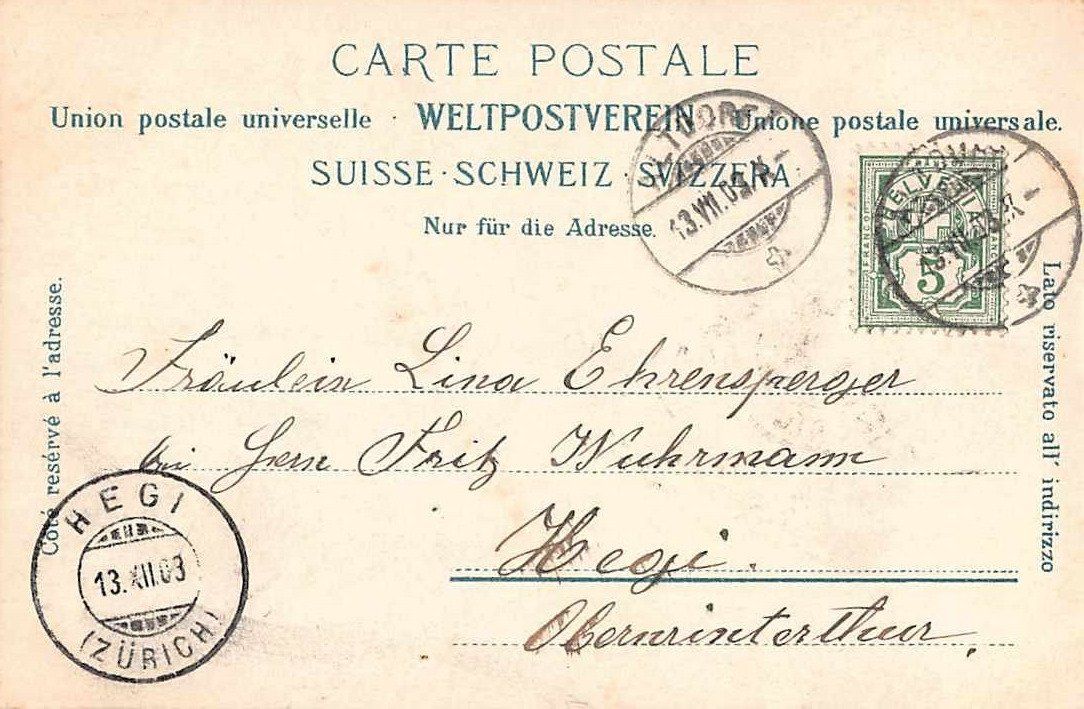 CARTE POSTALE
Union postale universelle · WELTPOSTVEREIN Unione postale universale.
SUISSE · SCHWEIZ · SVIZZERA
Nur für die Adresse.
HELVETIA
FRANCO
5
Côté reservé à l'adresse.
Lato riservato all' indirizzo
Fräulein Lina Ehrensperger
bei Herrn Fritz Wuhrmann
Hegi.
Oberwinterthur.
HEGI
13.XII.03
(ZÜRICH)